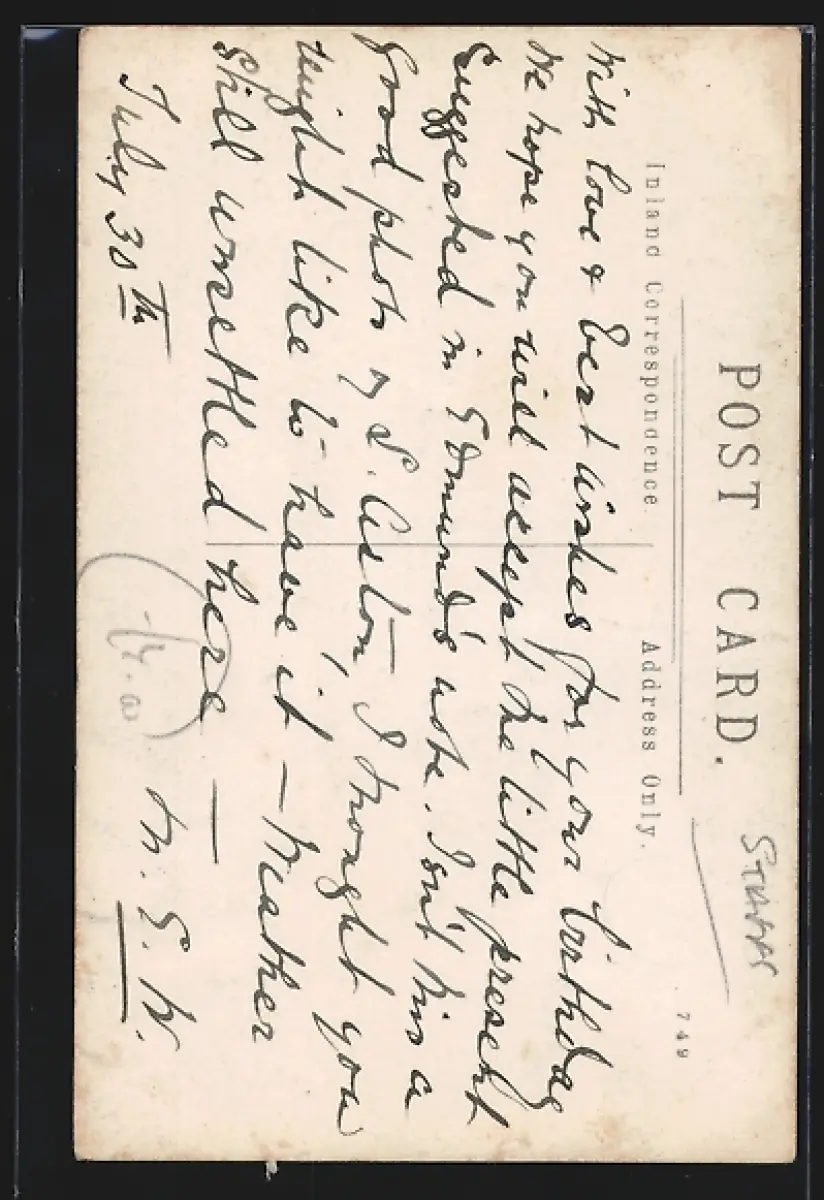 POST CARD.
STRAMS
749
Inland Correspondence.
Address Only.
With love & best wishes for your birthday
We hope you will accept the little present
suggested in Edmund's note. Isn't this a
good photo of S. Aston, I thought you
might like to have it — Weather
still unsettled here —
July 30th
M. E. W.